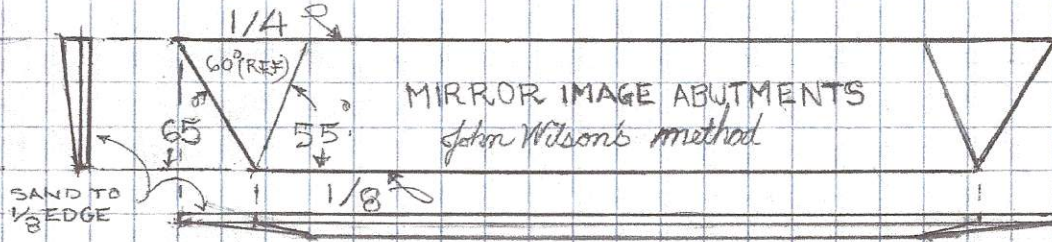 1/4
60°(REF)
MIRROR IMAGE ABUTMENTS
65° 55°
John Wilson's method
1/8
SAND TO
1/8 EDGE